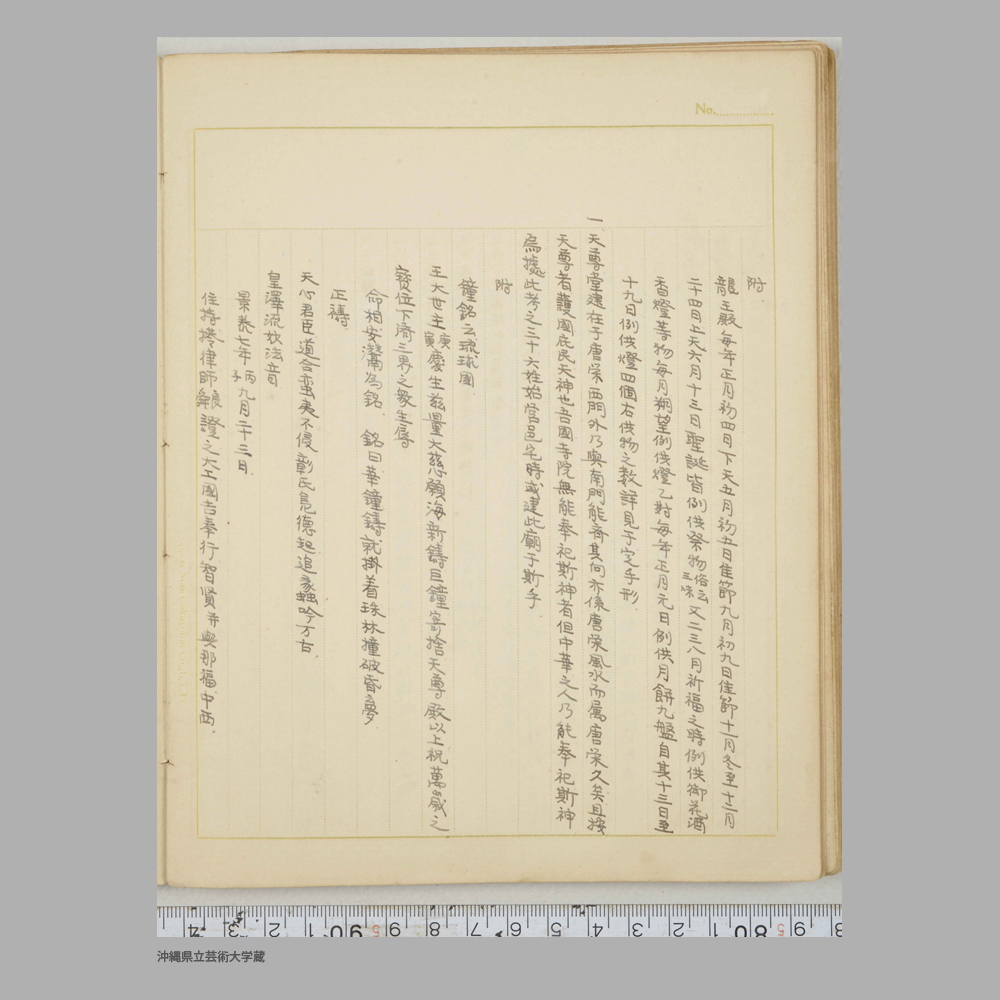 No.
附
龍王殿毎年正月初四日下天五月初五日佳節九月初九日佳節十一月冬至十二月
二十四日上天六月十三日聖誕皆例供祭物俗云三味又二三八月祈福之時例供御花酒
香燈等物毎月朔望例供燈乙對毎年正月元日例供月餅九盤自其十三日至
十九日例供燈四個右供物之数詳見于定手形
一天尊堂建在于唐栄西門外乃與南門能齊其向亦係唐栄風水而属唐栄久矣且按
天尊者護國庇民天神也吾國寺院無能奉祀斯神者但中華之人乃能奉祀斯神
為據此考之三十六姓始営邑宅時或建此廟于斯乎
附
鐘銘云琉球國
王大世主庚寅慶生茲量大慈願海新鋳巨鐘寄捨天尊殿以上祝萬歳之
寳位下濟三界之衆生辱
命相安潜為銘 銘曰華鐘鋳就掛着珠林撞破昏夢
正禱
天心君臣道合蛮夷不侵彰氏鳧德起追蠡吟万古
皇澤流妙法音
景泰七年丙子九月二十三日
住持捲律師 證之大工國吉奉行智賢并與那福中西
沖縄県立芸術大学蔵